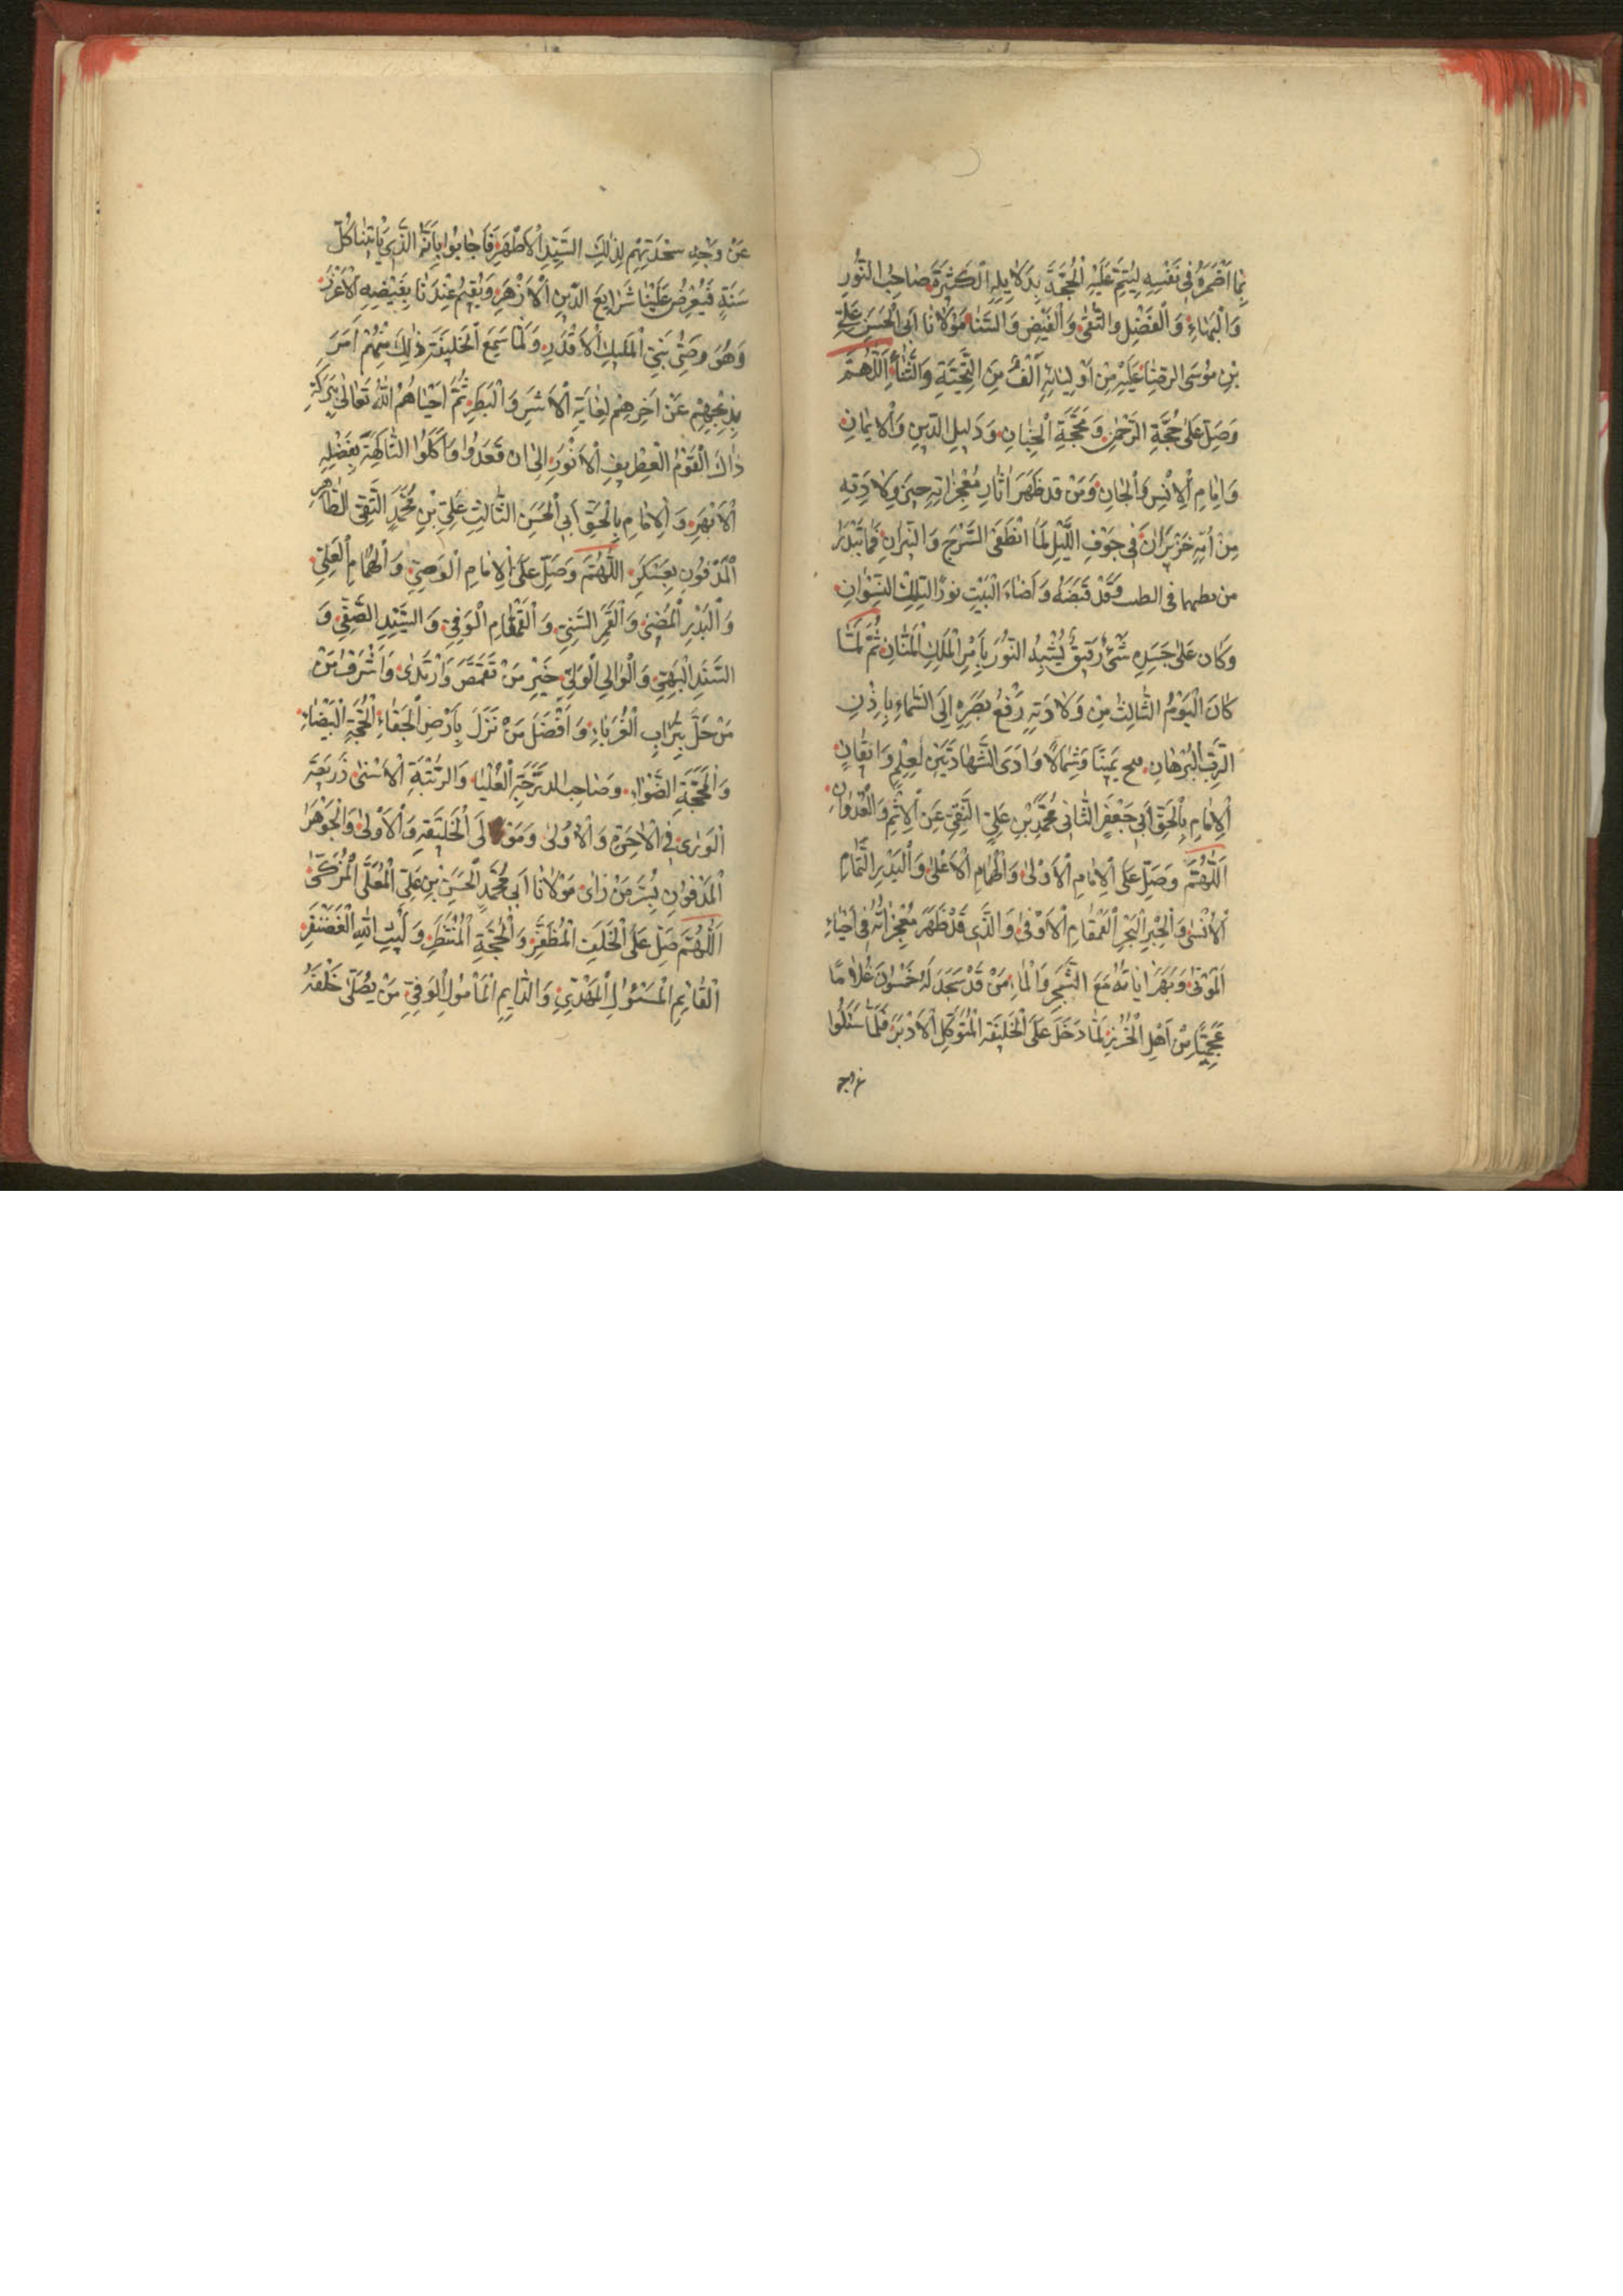 بِمَا اَضْمَرَهُ فِي نَفْسِهِ لِيُتِمَّ عَلَيْهِ الْحُجَّةَ بِدَلَايِلِهِ الْكَثِيرَةِ صَاحِبُ النُّورِ
وَالْبَهَاءِ وَالْفَضْلِ وَالتُّقٰى وَالْفَيْضِ وَالسَّنَا مَوْلَانَا اَبِى الْحَسَنِ عَلِىِّ
بْنِ مُوسَى الرِّضَا عَلَيْهِ مِنْ اَوْلِيَائِهِ اَلْفُ مِنَ التَّحِيَّةِ وَالثَّنَاءِ اَللّٰهُمَّ
وَصَلِّ عَلىٰ حُجَّةِ الرَّحْمٰنِ وَمَحَجَّةِ الْجِنَانِ وَدَلِيلِ الدِّينِ وَالْاِيمَانِ
وَاِمَامِ الْاِنْسِ وَالْجَانِ وَمَنْ قَدْ ظَهَرَ اٰثَارِ مُعْجِزَاتِهِ حِينَ وِلَادَتِهِ
مِنْ اُمِّهِ خَيْزَرَانَ فِي جَوْفِ اللَّيْلِ لَمَّا انْطَفَى السُّرُجِ وَالنِّيرَانِ
من فى الطست وَقَدْ قَبَضَهُ وَاَضَاءَ الْبَيْتِ نُورًا لِتِلْكَ النِّسْوَانِ
وَكَانَ عَلىٰ جَسَدِهِ شَىْءٌ رَقِيقٌ يُشْبِهُ النُّورَ بِاَمْرِ الْمَلِكِ الْمَنَّانِ ثُمَّ لَمَّا
كَانَ الْيَوْمُ الثَّالِثُ مِنْ وَلَادَتِهِ رَفَعَ بَصَرَهِ اِلَى السَّمَاءِ بِاِذْنِ
الرَّبِّ الْبُرْهَانِ يَمِينًا وَشِمَالًا وَادَى الشَّهَادَتَيْنِ لَعِلْمٍ وَاِتْقَانٍ
الْاِمَامِ بِالْحَقِّ اَبِى جَعْفَرِ الثَّانِى مُحَمَّدِ بْنِ عَلِىِّ التَّقِىِّ عَنِ الْاِثْمِ وَالْعُدْوَانِ
اَللّٰهُمَّ وَصَلِّ عَلَى الْاِمَامِ الْاَوْلىٰ وَالْهُمَامِ الْاَعْلىٰ وَالْبَدْرِ التَّمَامِ
الْاَسْنىٰ وَالْحِبْرِ الْبَحْرِ الْقَمْقَامِ الْاَوْفىٰ وَالَّذِى قَدْ ظَهَرَ مُعْجِزَاتُهُ فِى اِحْيَاءِ
الْمَوْتٰى وَبَهَرَ اٰيَاتُهُ مَعَ الشَّجَرِ وَالْمَاءِ مَنْ قَدْ سَجَدَ لَهُ خَمْسُونَ غُلَامًا
عَجَمِيًّا مِنْ اَهْلِ الْخَزَرِ لَمَّا دَخَلَ عَلَى الْخَلِيفَةِ الْمُتَوَكِّلِ الْاَدْبَرِ فَلَمَّا سَئَلُوا
عَنْ وَجْهِ سَجْدَتِهِمْ لِذٰلِكَ السَّيِّدِ الْاَطْهَرِ فَاَجَابُوا بِاَنَّهُ الَّذِى يَاْتِينَا كُلَّ
سَنَةٍ فَيُعْرِضُ عَلَيْنَا شَرَايِعَ الدِّينِ الْاَزْهَرِ وَيُقِيمُ عِنْدَنَا بِفَيْضِهِ الْاَغْزَرِ
وَهُوَ وَصِىُّ نَبِىِّ الْمَلِيكِ الْاَقْدَرِ وَلَمَّا سَمِعَ الْخَلِيفَةِ ذٰلِكَ مِنْهُمْ اَمَرَ
بِذَبْحِهِمْ عَنْ اٰخِرِهِمْ لِغَايَةِ الْاَشَرِ وَالْبَطَرِ ثُمَّ اَحْيَاهُمُ اللهُ تَعَالىٰ بِبَرَكَةِ
ذَاكَ الْقَوْمُ الْغِطْرِيفِ الْاَنْوَرِ اِلىٰ ان قَعَدُوا وَاَكَلُوا الْفَاكِهَةَ بِفَضْلِهِ
الْاَبْهَرِ وَالْاِمَامِ بِالْحَقِّ اَبِى الْحَسَنِ الثَّالِثِ عَلِىِّ بْنِ مُحَمَّدِ التَّقِى الطَّاهِرِ
الْمَدْفُونِ بِعَسْكَرِ اللّٰهُمَّ وَصَلِّ عَلَى الْاِمَامِ الْوَصِىِّ وَالْهُمَامِ الْعَلِىِّ
وَالْبَدْرِ الْمُضِىْءِ وَالْقَمَرِ السَّنِىِّ وَالْقَمْقَامِ الْوَفِىِّ وَالسَّيِّدِ الصَّفِّىِ وَ
السَّنَدِ الْبَهِىِّ وَالْوَالِى الْوَلِىِّ خَيْرِ مَنْ تَقَمَّصَ وَارْتَدٰى وَاَشْرَفُ مَنْ
مَنْ حَلَّ بِتُرَابِ الْغُرَبَاءِ وَاَفْضَلَ مَنْ نَزَلَ بِاَرْضِ الْجَفَاءِ الْحُجَّةِ الْبَيْضَاءِ
وَالْمَحَجَّةِ الضَّوَاءِ وَصَاحِبِ الدَّرَجَةِ الْعُلْيَا وَالرُّتْبَةِ الْاَسْنىٰ ذَرِيعَةَ
الْوَرٰى فِى الْاٰخِرَةِ وَالْاُولىٰ وَمَنْ الْخَلِيفَةِ وَالْاَوْلىٰ وَالْجَوْهَرَ
الْمَدْفُونِ بِسُرَّ مَنْ رَاٰى مَوْلَانَا اَبِى مُحَمَّدِ الْحَسَنِ بْنِ عَلِىِّ الْمُعَلَّى الْمُزَكّىٰ
اَللّٰهُمَّ صَلِّ عَلَى الْخَلَفِ الْمُظَفَّرِ وَالْحُجَّةِ الْمُنْتَظَرِ وَلَيْثِ اللهِ الْغَضَنْفَرِ
الْقَايِمِ الْمَسْئُولِ الْمَهْدِىِّ وَالدَّايِمِ الْمَاْمُولِ الْوَفِىِّ مَنْ يُصَلّىٰ خَلْفَهُ